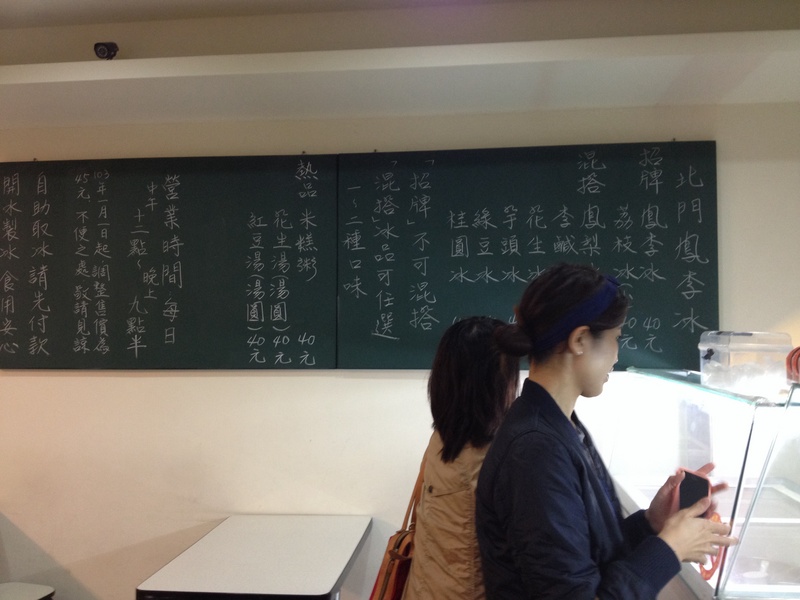 北門鳳李冰
招牌 鳳李冰 40元
荔枝冰 40元
混搭 鳳梨
李鹹
花生冰
芋頭冰
綠豆冰
桂圓冰
「招牌」不可混搭
「混搭」冰品可任選
一～二種口味
熱品 米糕粥 40元
花生湯(湯圓)40元
紅豆湯(湯圓)40元
營業時間 每日
中午 十二點～晚上 九點半
103年1月1日起調整售價為
45元 不便之處敬請見諒
自助取冰 請先付款
開水製冰 食用安心